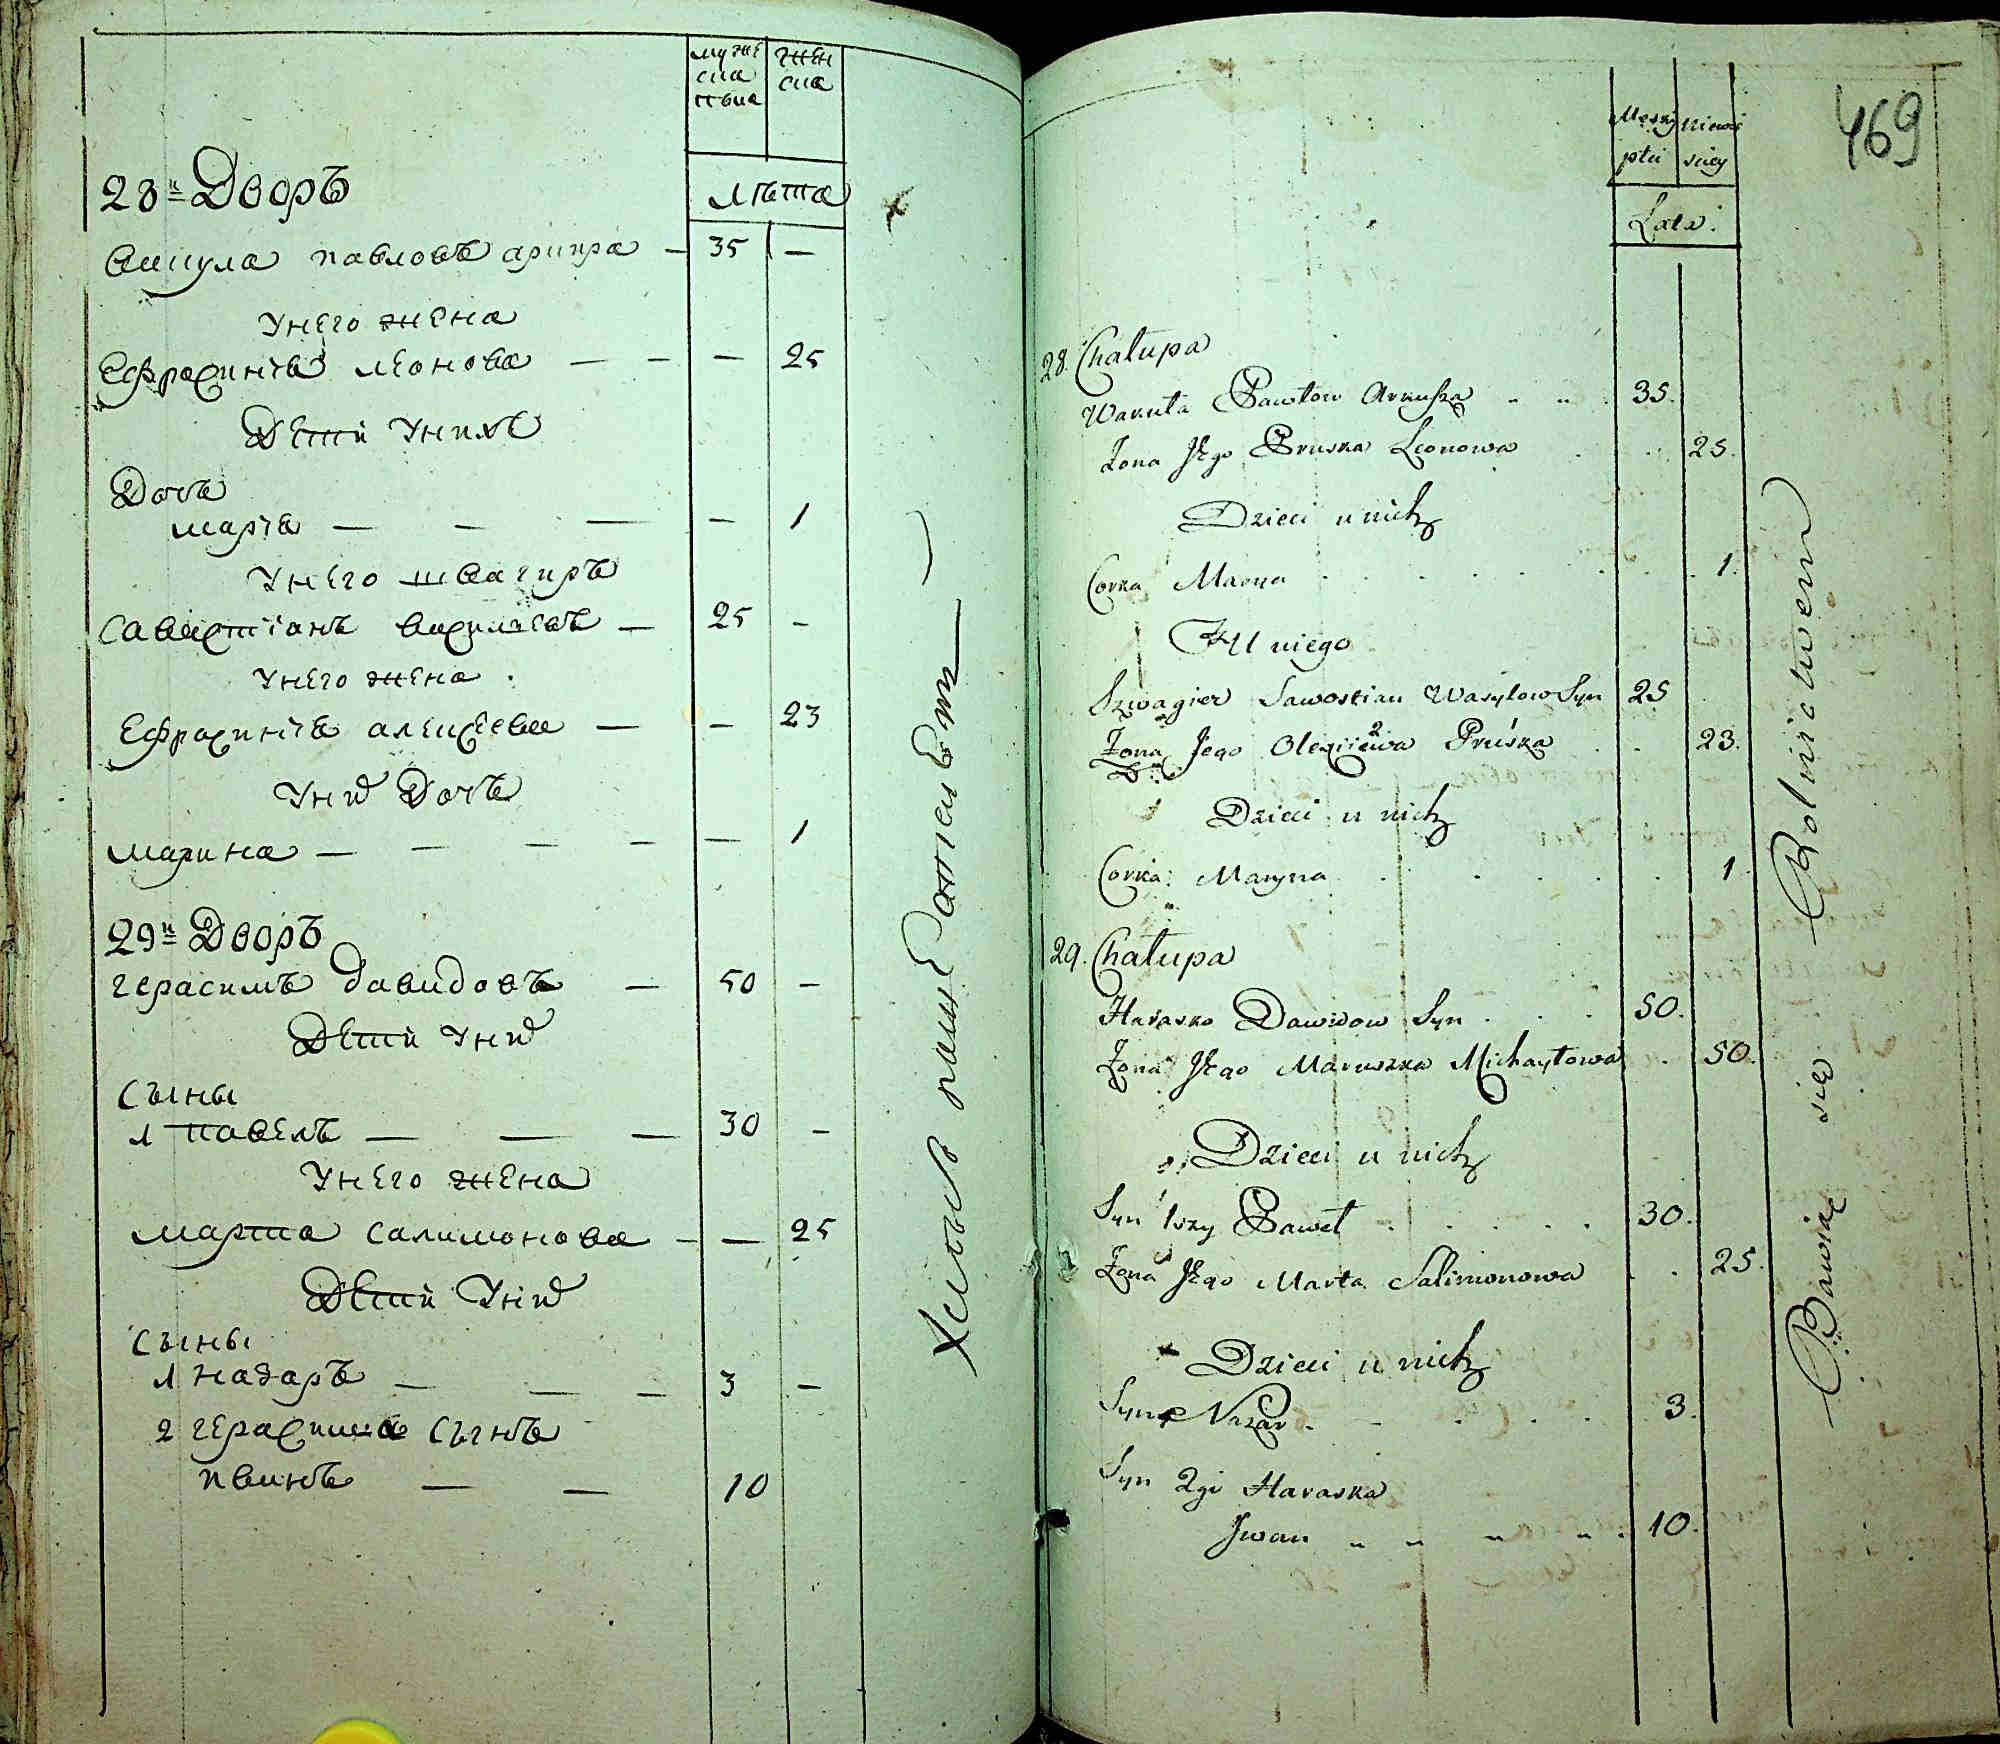 мужеска пола
женска
лѣта
28й Дворъ
Вакула павловъ аркуша — 35 —
Унего жена
Ефросинія леонова — — — 25
Дети унихъ
Дочь
марія — — — — 1
Унего швагиръ
Савостіанъ василіевъ — 25 —
Унего жена
Ефросинія алексеева — — 23
Уних Дочь
марина — — — — — 1
29й Дворъ
герасимъ давидовъ — 50 —
Дети Уних
Сыны
1 павелъ — — — 30 —
Унего жена
марта салимонова — — 25
Дети Уних
Сыны
1 назаръ — — — 3 —
2 герасима сынъ
иванъ — — 10
Хлебопашествомъ
469
Męskiey płci
niewieściey
Lata
28. Chałupa
Wakuła Pawłow Arkusza 35.
Żona Jego Pruska Leonowa 25.
Dzieci u nich
Corka Marya 1.
U niego
Szwagier Sawostian Wasylow Syn 25
Żona Jego Olexiiewa Pruska 23.
Dzieci u nich
Corka Maryna 1
29. Chałupa
Harasko Dawidow Syn 50.
Żona Jego Maruszka Michayłowa 50.
Dzieci u nich
Syn 1szy Paweł 30.
Żona Jego Marta Salimonowa 25.
Dzieci u nich
Syn Nazar 3.
Syn 2gi Haraska
Iwan 10.
Bawią się Rolnictwem